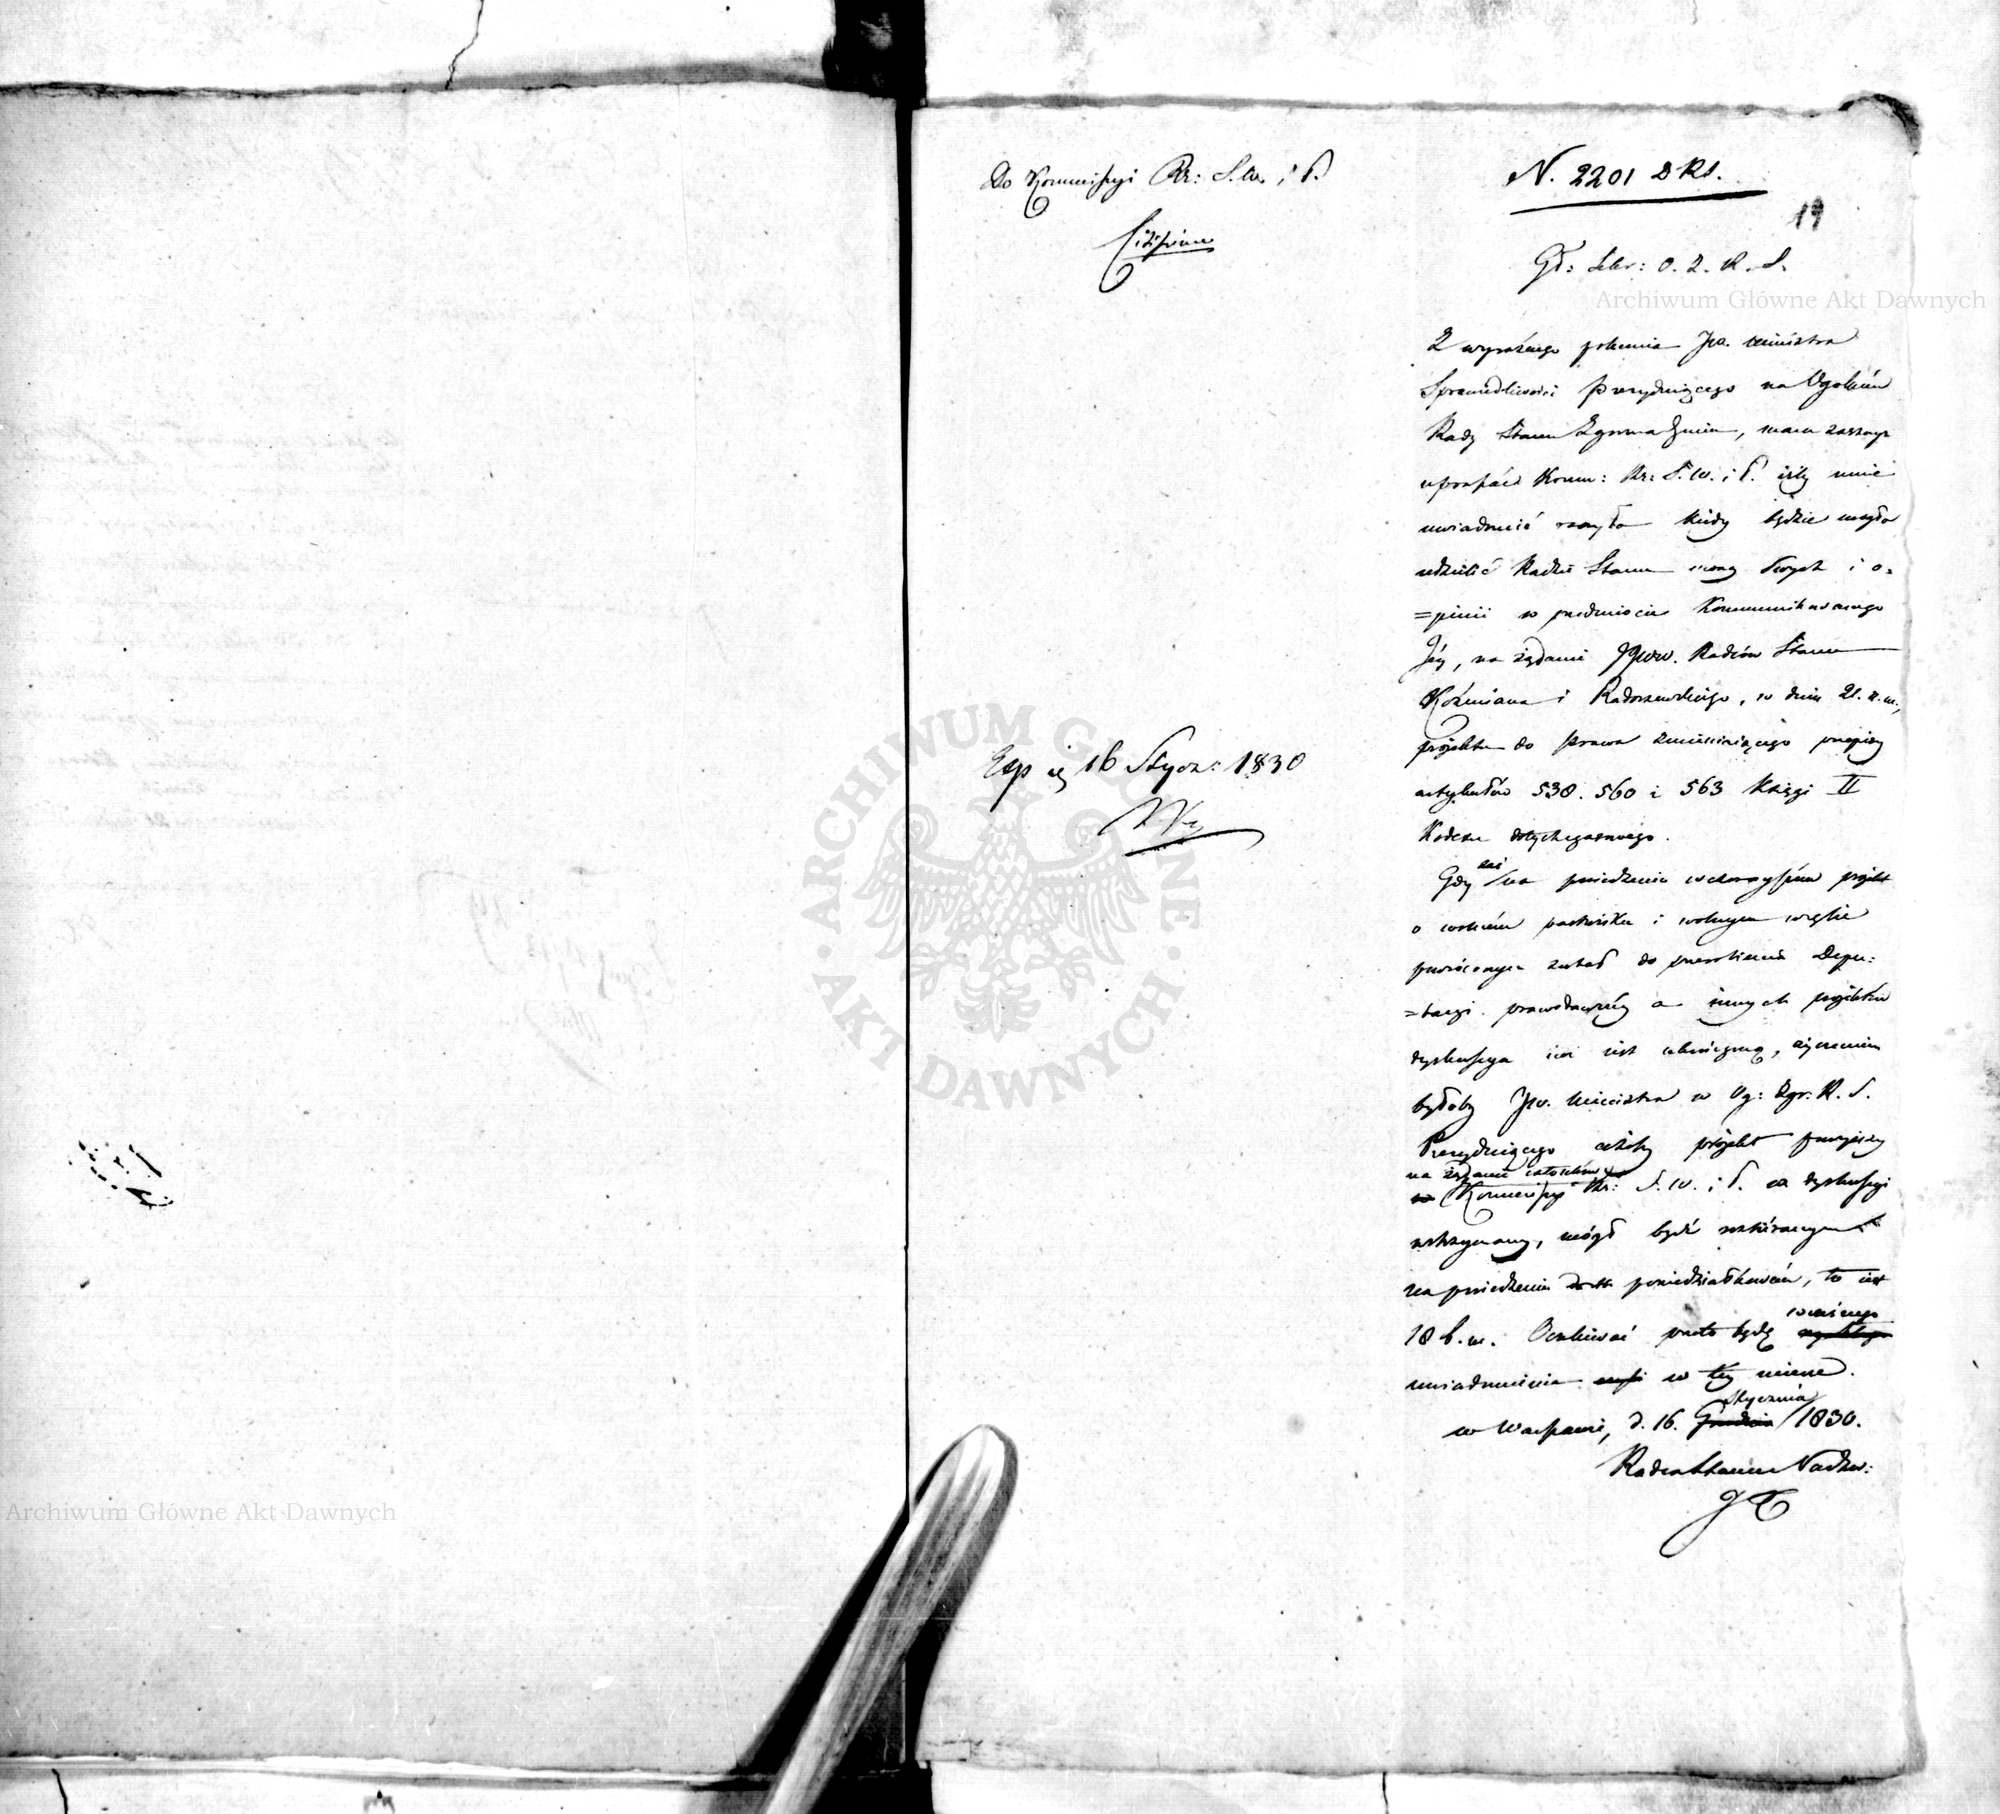 Do Kommissyi Rz: S. W. i P.
Citissime
Exp ą 16 Stycz: 1830
N. 2201 DKS.
19
Gł: Sekr: O. Z. R. S.
Z wyraźnego polecenia JW. Ministra
Sprawiedliwości Prezydującego na Ogólném
Rady Stanu Zgromadzeniu, mam zaszczyt
upraszać Komm: Rz: S. W. i P. iżby mnie
uwiadomić raczyła kiedy będzie mogła
udzielić Radzie Stanu uwag swych i o=
=pinii w przedmiocie kommunikowanego
Jéy, na żądanie JJWW. Radców Stanu
Koźmiana i Radoszewskiego, w dniu 21. z. m.,
projektu do prawa zmieniającego przepisy
artykułów 530. 560 i 563 Księgi II
Kodexu dotychczasowego.
Gdy zaś na posiedzeniu wczorayszém projekt
o wolném pastwisku i wolnym wrębie
poruczonym został do przerobienia Depu=
=tacyi prawodawczéy a innych projektów
dyskussya iuż iest ukończoną, życzeniem
byłoby JW. Ministra w Og: Zgr. R. S.
Prezydującego ażeby projekt powyższy
na żądanie członków
Kommissyi Rz: S. W. i P. w dyskussyi
wstrzymany, mógł być roztrząsanym
na posiedzeniu poniedziałkowém, to iest
18 b. m. Oczekiwać przeto będę
wczesnego
uwiadomienia w téy mierze.
Stycznia
w Warszawie, d. 16. Grudnia 1830.
Radca Stanu Nadzw:
Archiwum Główne Akt Dawnych
Archiwum Główne Akt Dawnych
ARCHIWUM GŁÓWNE · AKT DAWNYCH ·